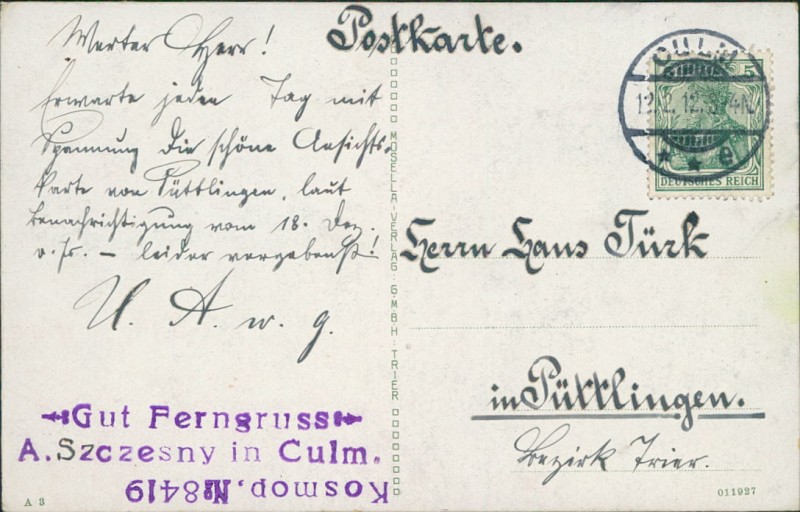 Postkarte.
Werter Herr!
Erwarte jeden Tag mit
Spannung die schöne Ansichts-
karte von Püttlingen, laut
Benachrichtigung vom 18. Dez.
v. Js. – leider vergebens!
U. A. w. g.
Gut Ferngruss
A. Szczesny in Culm.
Kosmop. No 8419
A 3
MOSELLA-VERLAG G.M.B.H. TRIER
CULM
12.2.12.
e
5
DEUTSCHES REICH
Herrn Hans Türk
in Püttlingen.
Bezirk Trier.
011927